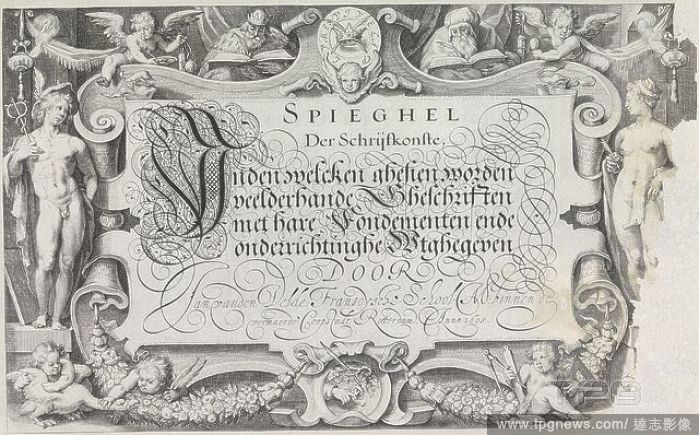 SPIEGHEL
Der Schrijfkonste,
Inden welcken ghesien worden
veelderhande Gheschriften
met hare Fondementen ende
onderrichtinghe. Wtghegeven
DOOR
Jan vanden Velde Fransoysche School Mr. binnen de
vermaerde Coopstadt Rotterdam. Anno 1605.
www.tpgnews.com/ 達志影像